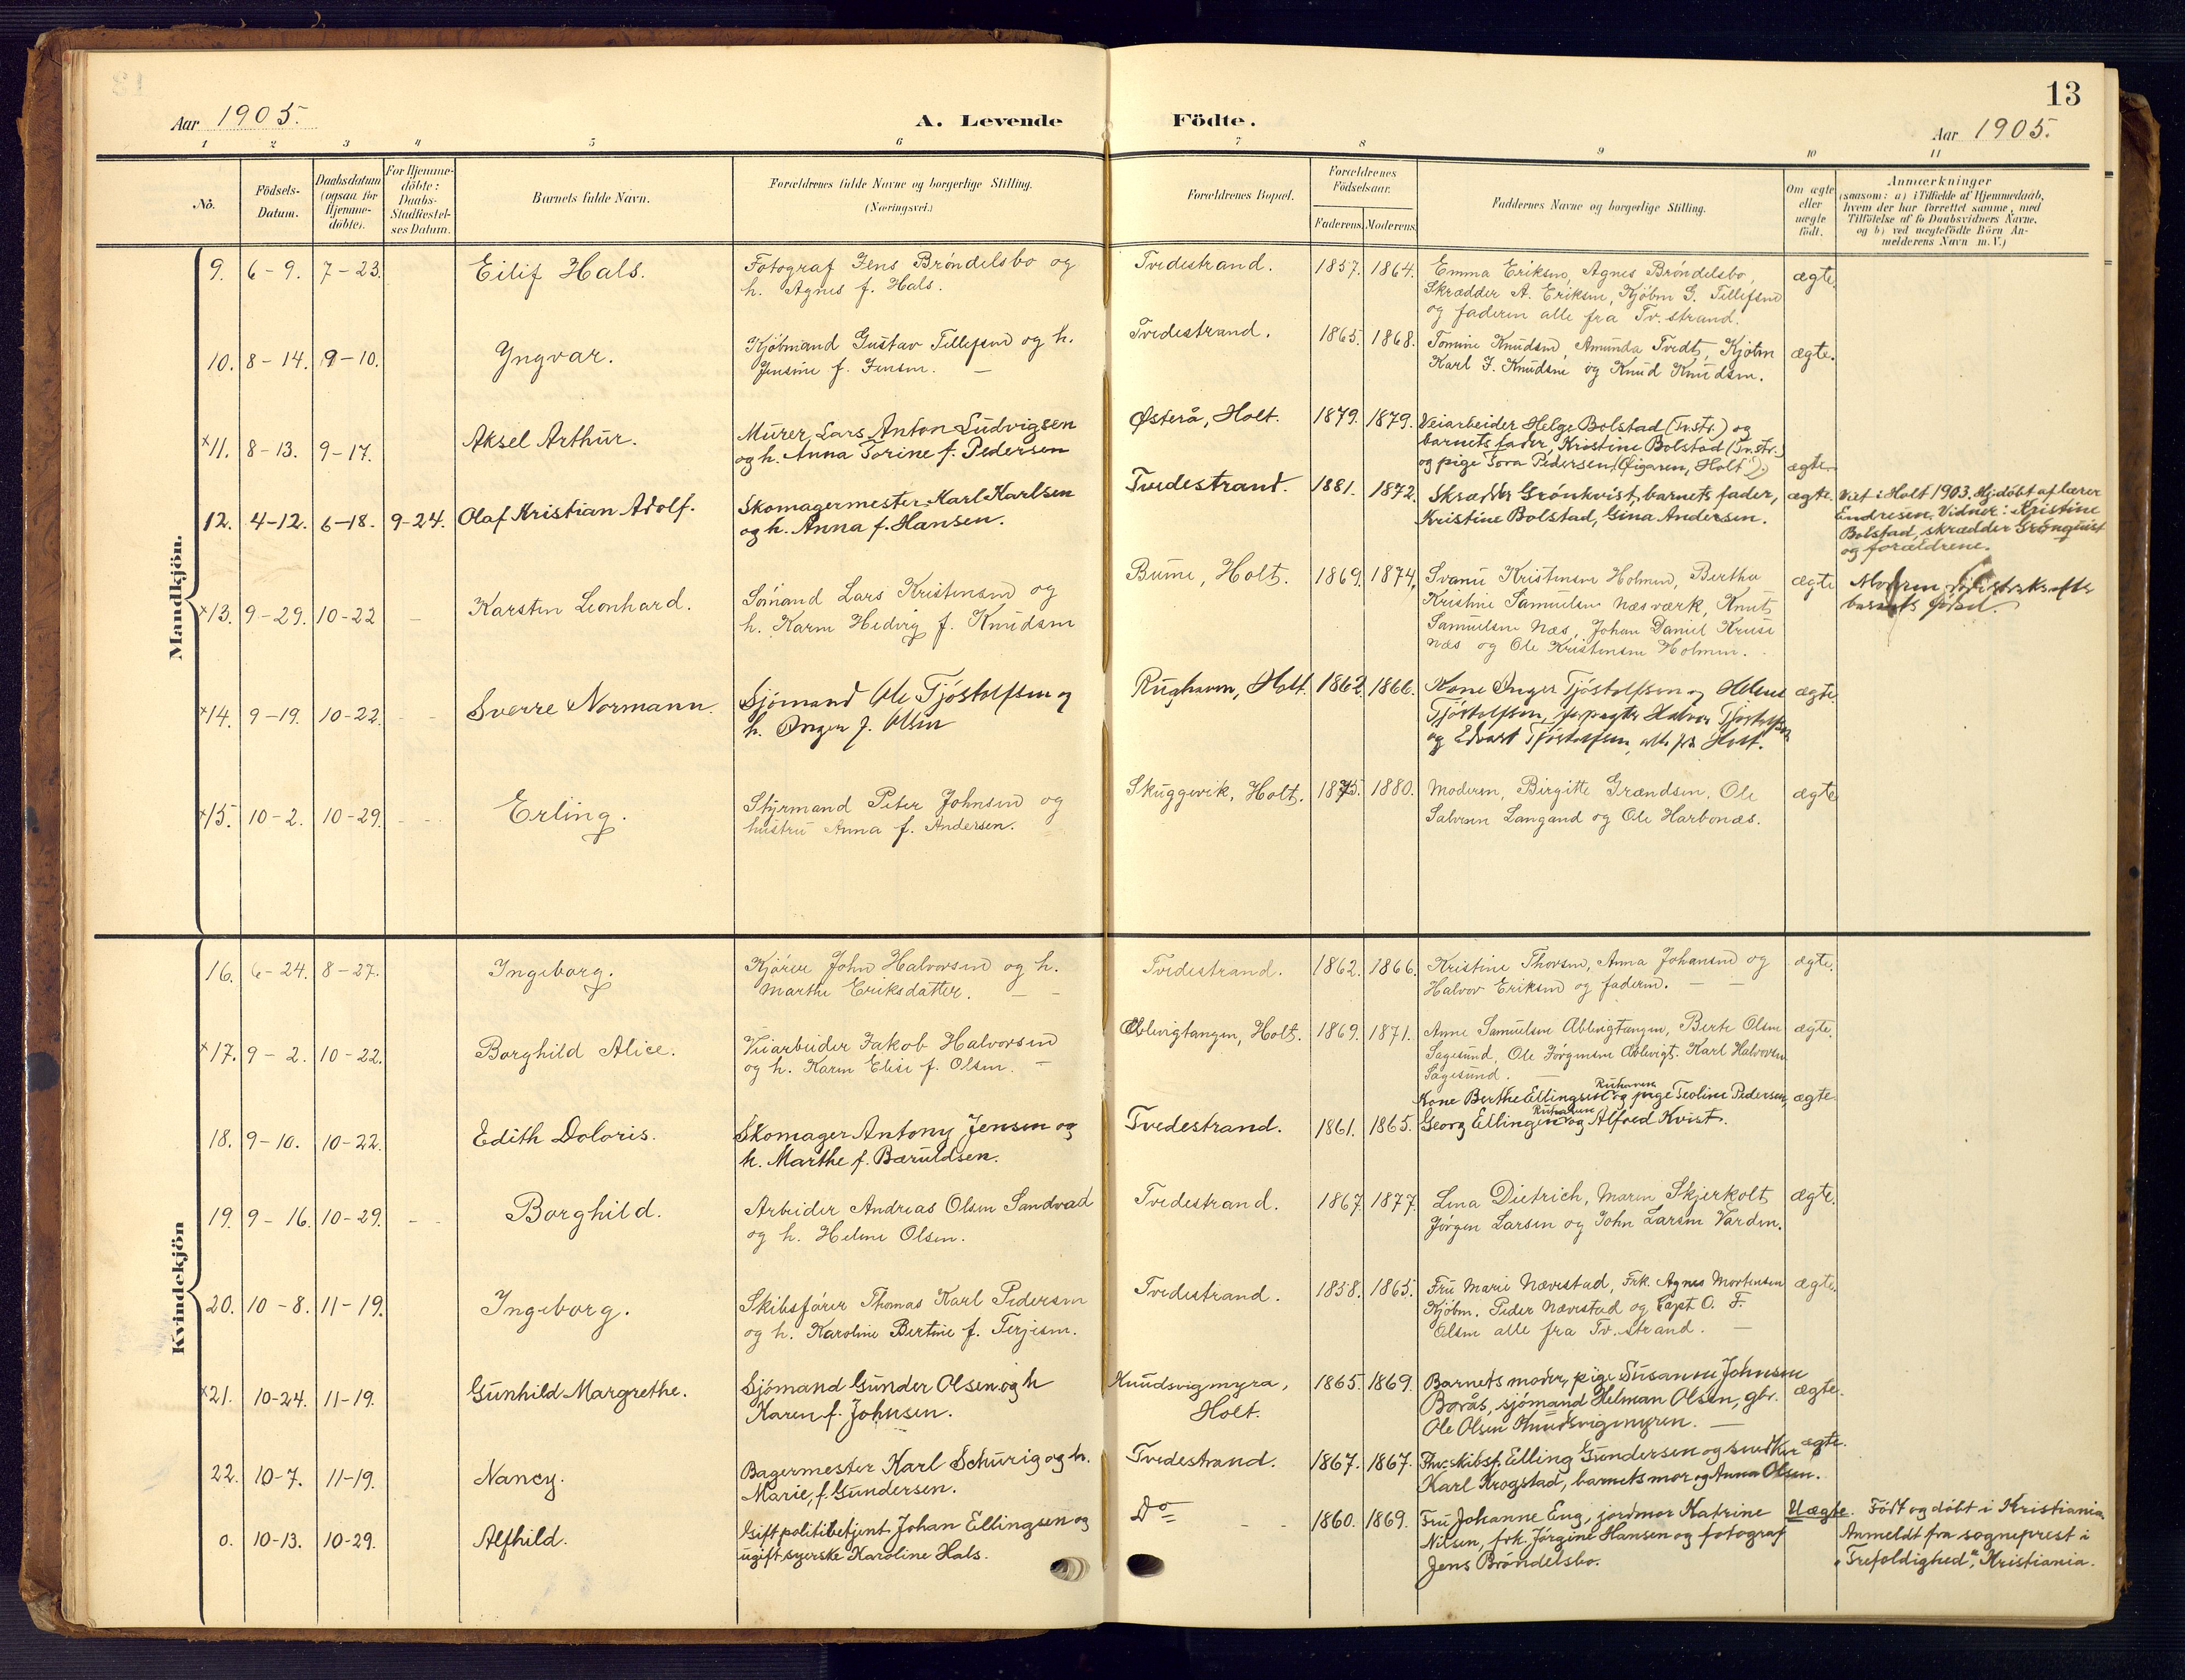 13
Aar 1905.
A. Levende Födte.
Aar 1905.
1 2 3 4 5 6 7 8 9 10 11
No.
Födsels-
Datum.
Daabsdatum
(ogsaa for
Hjemme-
döbte).
For Hjemme-
döbte:
Daabs-
Stadfæstel-
ses Datum.
Barnets fulde Navn.
Forældrenes fulde Navne og borgerlige Stilling.
(Næringsvei.)
Forældrenes Bopæl.
Forældrenes
Födselsaar.
Faderens. Moderens.
Faddernes Navne og borgerlige Stilling.
Om ægte
eller
uægte
födt.
Anmærkninger
(saasom: a) i Tilfælde af Hjemmedaab,
hvem der har forrettet samme, med
Tilföielse af to Daabsvidners Navne,
og b) ved uægtefödte Börn An-
melderens Navn m. V.)
Mandkjön.
9. 6-9. 7-23. Eilif Hals.
Fotograf Jens Bröndelsbo og
h. Agnes f. Hals.
Tvedestrand. 1857. 1864.
Emma Eriksen, Agnes Bröndelsbo,
Skrædder A. Eriksen, Kjöbm G. Tellefsen
og faderen alle fra Tv. strand.
ægte.
10. 8-14. 9-10. Yngvar.
Kjöbmand Gustav Tellefsen og h.
Jensine f. Jensen. —
Tvedestrand. 1865. 1868.
Tomine Knudsen, Amunda Tvedt, Kjöbm
Karl J. Knudsen og Knud Knudsen.
ægte.
×11. 8-13. 9-17. Aksel Arthur.
Murer Lars Anton Ludvigsen
og h. Anna Torine f. Pedersen
Østerå, Holt. 1879. 1879.
Veiarbeider Helge Bolstad (Tv.str.) og
barnets fader, Kristine Bolstad (Tv.str.)
og pige Tora Pedersen (Øigaren, Holt)
ægte.
12. 4-12. 6-18. 9-24. Olaf Kristian Adolf.
Skomagermester Karl Karlsen
og h. Anna f. Hansen.
Tvedestrand. 1881. 1872.
Skrædder Grönkvist, barnets fader,
Kristine Bolstad, Gina Andersen.
ægte.
Viet i Holt 1903. Hj.döbt af lærer
Endresen. Vidner: Kristine
Bolstad, skrædder Grönquist
og forældrene.
×13. 9-29. 10-22 Karsten Leonhard.
Sömand Lars Kristensen og
h. Karen Hedvig f. Knudsen
Bume, Holt. 1869. 1874.
Svanu Kristensen Holmen, Berthe
Kristine Samuelsen Næsværk, Knut
Samuelsen Næs, Johan Daniel Kruse
Næs og Ole Kristensen Holmen.
ægte
Moderen
barnets födsel.
×14. 9-19. 10-22. Sverre Normann.
Sjömand Ole Tjöstolfsen og
h. Inger f. Olsen
Rughaven, Holt. 1862. 1866.
Kone Inger Tjöstolfsen og Helene
Tjöstolfsen, forpagter Halvor Tjöstolfsen
og Edvart Tjöstolfsen, alle fra Holt.
ægte.
×15. 10-2. 10-29. Erling.
Styrmand Peter Johnsen og
hustru Anna f. Andersen.
Skuggevik, Holt. 1875. 1880.
Moderen, Birgitte Grændsen, Ole
Salvesen Langand og Ole Harbonæs.
ægte
Kvindekjön
16. 6-24. 8-27. Ingeborg.
Kjörer John Halvorsen og h.
Marthe Eriksdatter. — —
Tvedestrand. 1862. 1866.
Kristine Thorsen, Anna Johansen og
Halvor Eriksen og faderen. — —
ægte.
×17. 9-2. 10-22. Borghild Alice.
Veiarbeider Jakob Halvorsen
og h. Karen Elise f. Olsen. —
Ablevigtangen, Holt. 1869. 1871.
Anne Samuelsen Ablevigtangen, Berte Olsen
Sagesund, Ole Jörgensen Ablevigt. Karl Halvorsen
Sagesund. —
ægte.
18. 9-10. 10-22. Edith Doloris.
Skomager Antony Jensen og
h. Marthe f. Baruldsen.
Tvedestrand. 1861. 1865.
Ruhaven
Kone Berthe Ellingsen og pige Teoline Pedersen,
Ruhaven
Georg Ellingsen og Alfred Kvist.
ægte
19. 9-16. 10-29. Borghild.
Arbeider Andreas Olsen Sandvad
og h. Helene Olsen.
Tvedestrand. 1867 1877.
Lina Dietrich, Maren Skjerkolt,
Jörgen Larsen og John Larsen Varden.
ægte.
20. 10-8. 11-19. Ingeborg.
Skibsförer Thomas Karl Pedersen
og h. Karoline Bertine f. Terjesen.
Tvedestrand. 1858. 1865.
Fru Marie Nævestad, Frk. Agnes Mortensen
Kjöbm. Peder Nævestad og Capt O. F.
Olsen alle fra Tv. strand. —
ægte.
×21. 10-24. 11-19. Gunhild Margrethe.
Sjömand Gunder Olsen og h
Karen f. Johnsen.
Knudsvigmyra,
Holt.
1865. 1869.
Barnets moder, pige Susanne Johnsen
Borås, sjömand Helman Olsen, gbr.
Ole Olsen Knudsvigmyren. —
ægte.
22. 10-7. 11-19. Nancy.
Bagermester Karl Schurig og h.
Marie, f. Gundersen.
Tvedestrand. 1867. 1867.
Fhv. skibsf. Elling Gundersen og snedker
Karl Krogstad, barnets mor og Anna Olsen.
ægte.
o. 10-13. 10-29. Alfhild.
Gift politibetjent Johan Ellingsen og
ugift syerske Karoline Hals.
Do 1860. 1869.
Fru Johanne Eug, jordmor Katrine
Nilsen, frk. Jörgine Hansen og fotograf
Jens Bröndelsbo.
Uægte.
Födt og döbt i Kristiania.
Anmeldt fra sogneprest i
"Trefoldighed", Kristiania.